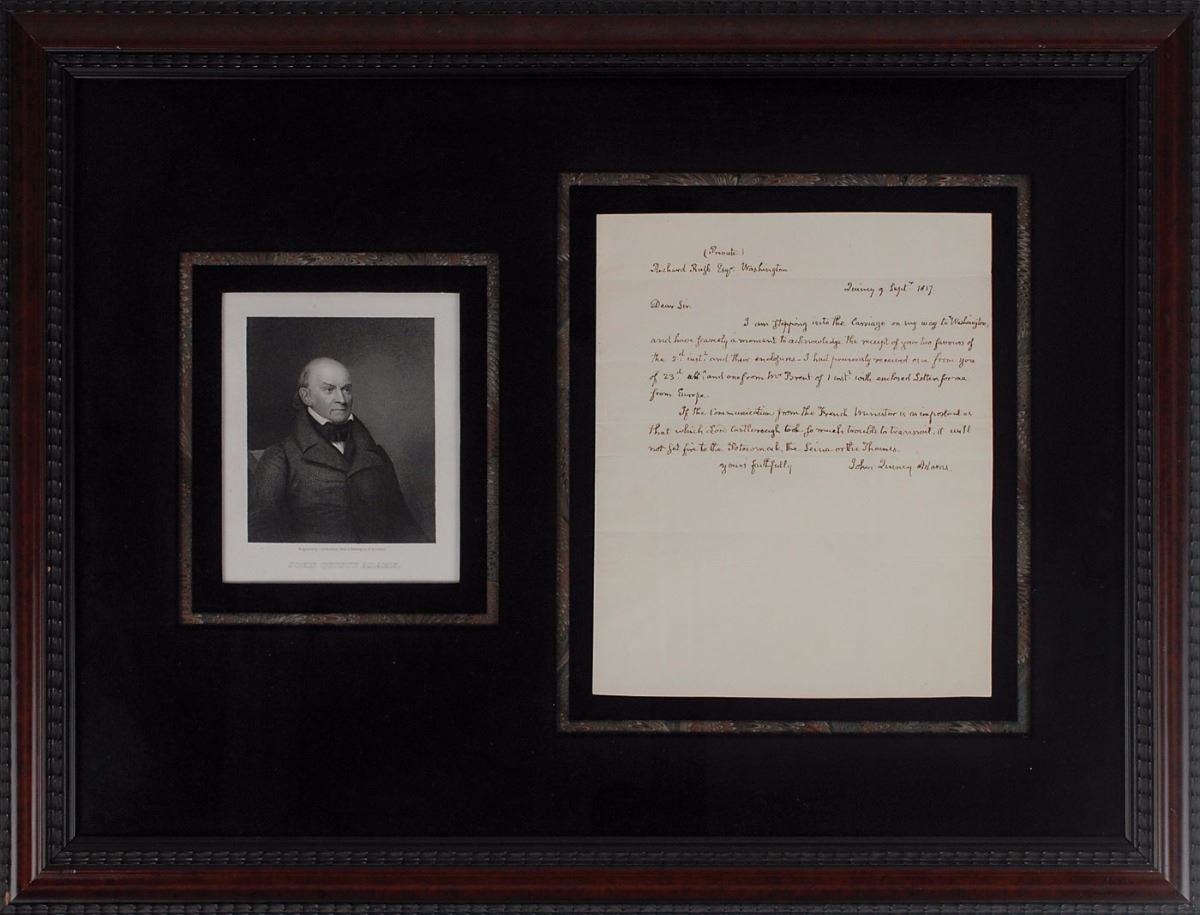 JOHN QUINCY ADAMS.
(Private)
Richard Rush Esqr. Washington
Quincy 9 Septr. 1817.
Dear Sir.
I am stepping into the Carriage on my way to Washington,
and have scarcely a moment to acknowledge the receipt of your two favours of
the 2d. instt. and their enclosures - I had previously received one from you
of 23d. ulto. and one from Mr. Brent of 1 instt. with enclosed Letters for me
from Europe.
If the Communication from the French Minister is as important as
that which Lord Castlereagh took so much trouble to transmit, it will
not set fire to the Potowmack, the Seine or the Thames.
yours faithfully John Quincy Adams.